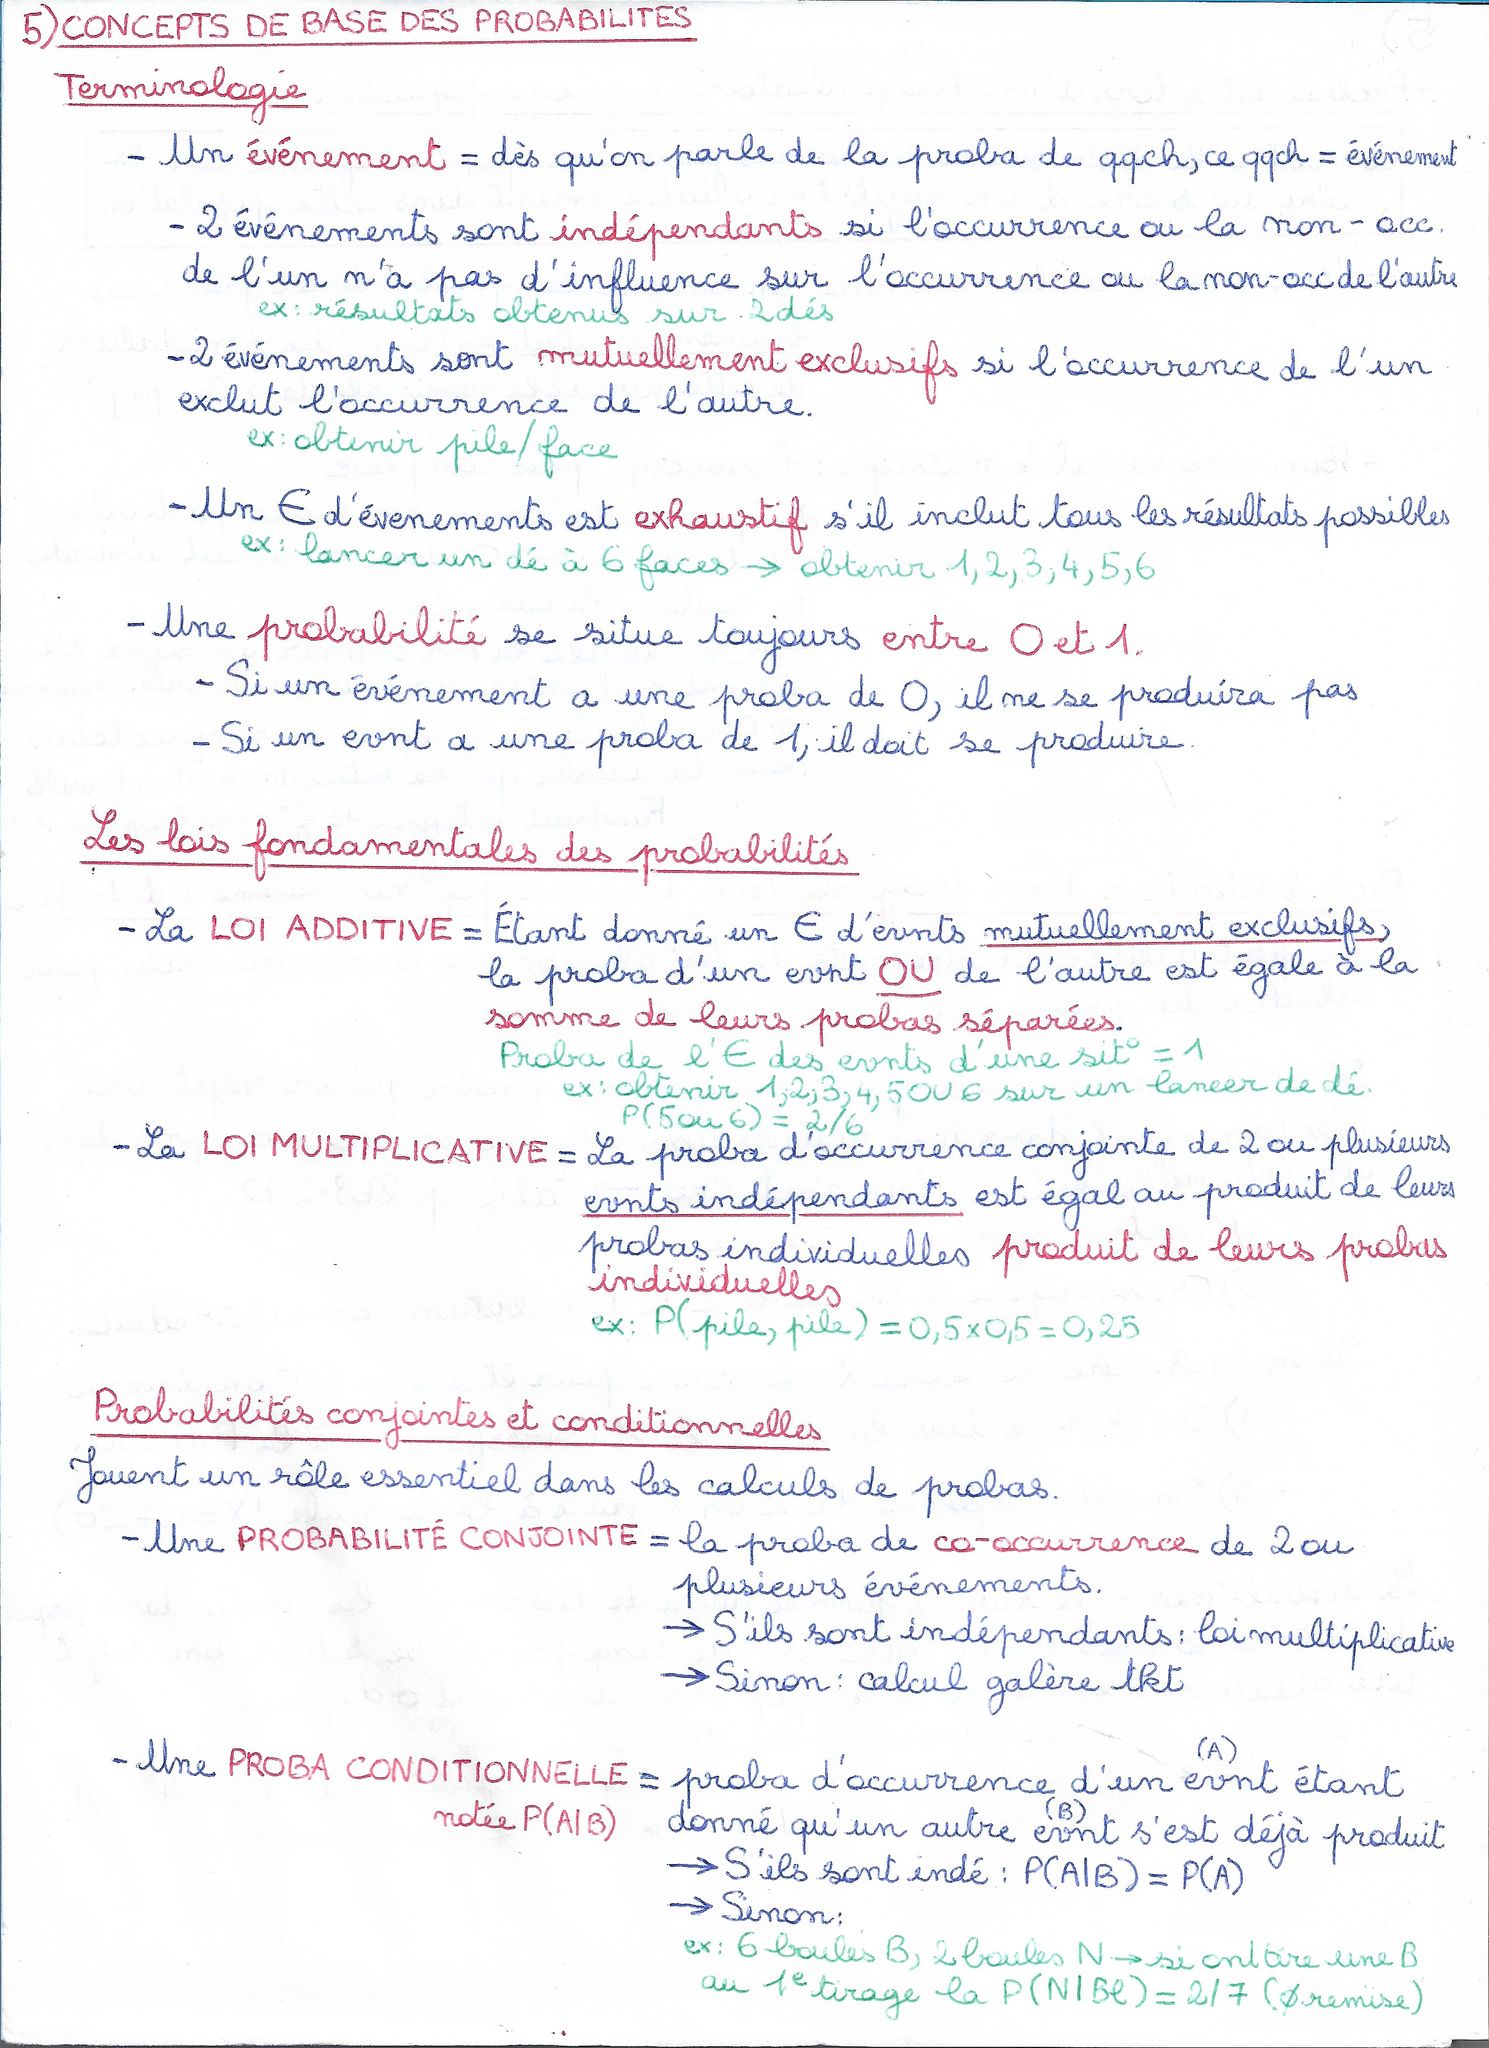 5) CONCEPTS DE BASE DES PROBABILITES
Terminologie
- Un événement = dès qu'on parle de la proba de qqch, ce qqch = événement
- 2 événements sont indépendants si l'occurrence ou la non-occ.
de l'un n'a pas d'influence sur l'occurrence ou la non-occ de l'autre
ex: résultats obtenus sur 2 dés
- 2 événements sont mutuellement exclusifs si l'occurrence de l'un
exclut l'occurrence de l'autre.
ex: obtenir pile/face
- Un E d'évenements est exhaustif s'il inclut tous les résultats possibles
ex: lancer un dé à 6 faces → obtenir 1, 2, 3, 4, 5, 6
- Une probabilité se situe toujours entre 0 et 1.
- Si un événement a une proba de 0, il ne se produira pas
- Si un evnt a une proba de 1, il doit se produire.
Les lois fondamentales des probabilités
- La LOI ADDITIVE = Étant donné un E d'evnts mutuellement exclusifs,
la proba d'un evnt OU de l'autre est égale à la
somme de leurs probas séparées.
Proba de l'E des evnts d'une sit° = 1
ex: obtenir 1, 2, 3, 4, 5 OU 6 sur un lancer de dé.
P(5 ou 6) = 2/6
- La LOI MULTIPLICATIVE = La proba d'occurrence conjointe de 2 ou plusieurs
evnts indépendants est égal au produit de leurs
probas individuelles produit de leurs probas
individuelles
ex: P(pile, pile) = 0,5 x 0,5 = 0,25
Probabilités conjointes et conditionnelles
Jouent un rôle essentiel dans les calculs de probas.
- Une PROBABILITÉ CONJOINTE = la proba de co-occurrence de 2 ou
plusieurs événements.
→ S'ils sont indépendants : loi multiplicative
→ Sinon : calcul galère tkt
(A)
- Une PROBA CONDITIONNELLE = proba d'occurrence d'un evnt étant
(B)
notée P(A|B) donné qu'un autre evnt s'est déjà produit
→ S'ils sont indé : P(A|B) = P(A)
→ Sinon :
ex: 6 boules B, 2 boules N → si on tire une B
au 1e tirage la P(N|Bl) = 2/7 (ø remise)